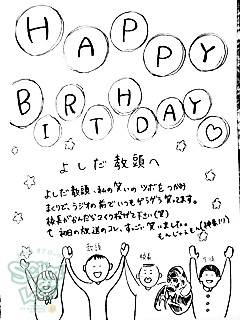 HAPPY
BIRTHDAY♡
よしだ教頭へ
よしだ教頭、私の笑いのツボをつかみ
まくりで、ラジオの前でいつもゲラゲラ笑ってます。
校長がかんだらつくつく投げて下さい(笑)
初日の放送のコレ、すごい笑いました。
もんじゃもん(神奈川)
教頭
校長
生徒